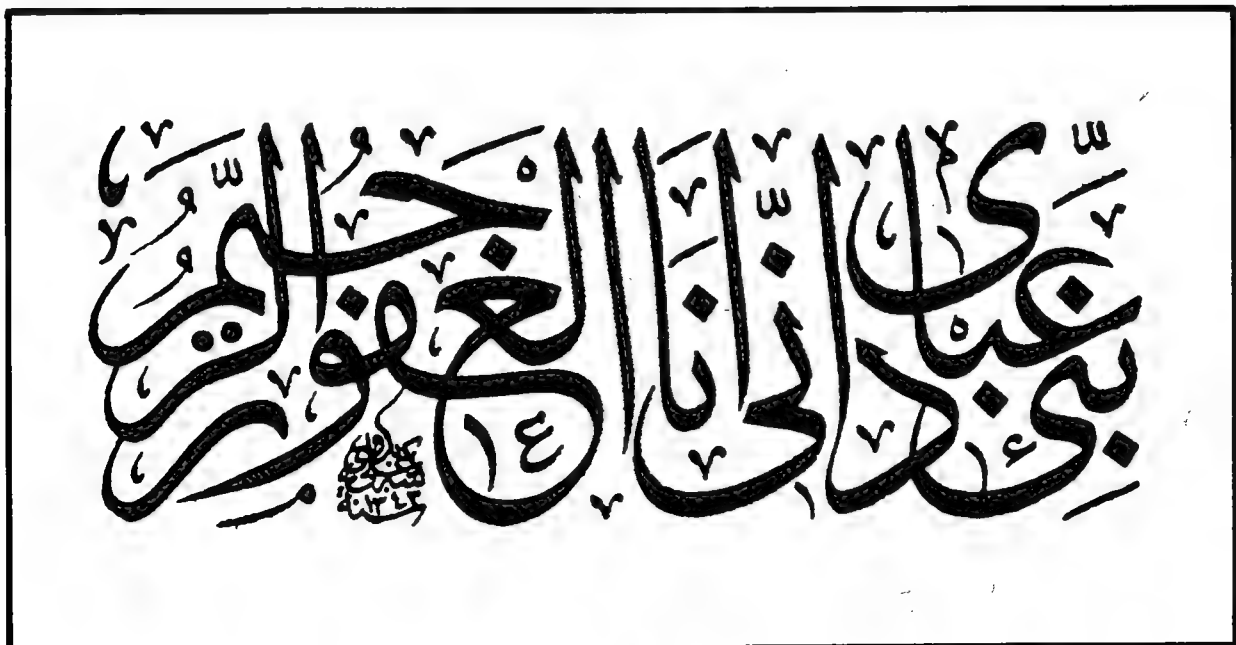 نَبِّئْ عِبَادِي أَنِّي أَنَا الْغَفُورُ الرَّحِيمُ
سنة ١٣٤٣